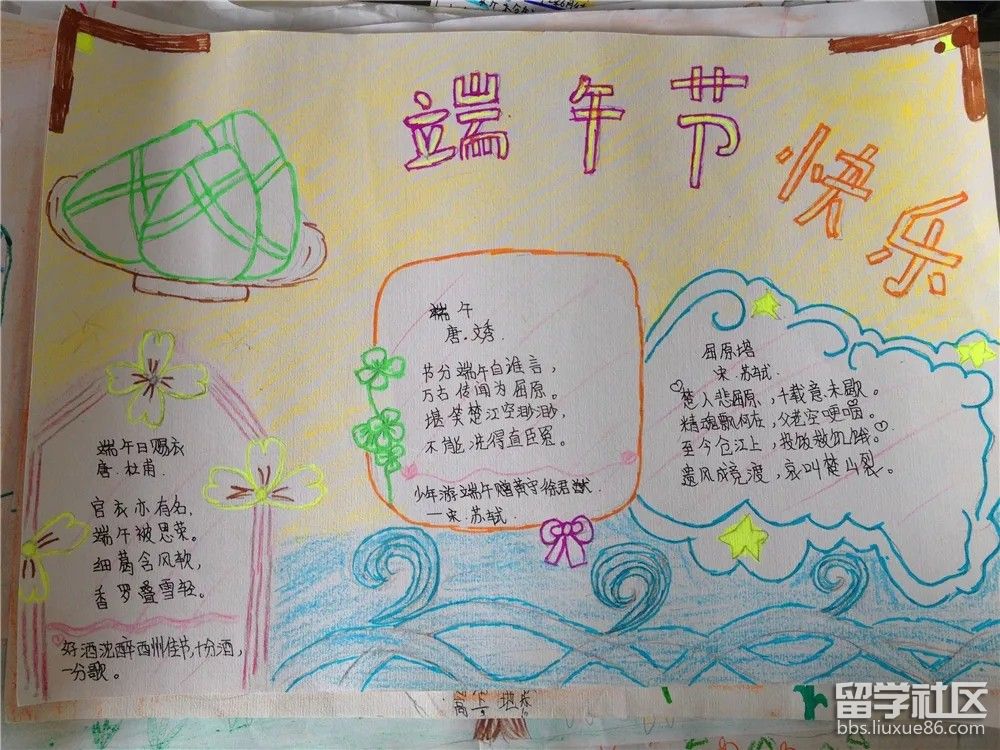 端午节
快乐
端午
唐.文秀.
节分端午自谁言,
万古传闻为屈原。
堪笑楚江空渺渺,
不能洗得直臣冤。
少年游端午赠黄守徐君猷.
一宋.苏轼.
屈原塔
宋.苏轼.
楚人悲屈原,千载意未歇。
精魂飘何在,父老空哽咽。
至今仓江上,投饭救饥饿。
遗风成竞渡,哀叫楚山裂。
端午日赐衣
唐.杜甫.
宫衣亦有名,
端午被恩荣。
细葛含风软,
香罗叠雪轻。
好酒沈醉西州佳节,十分酒,
一分歌。
留学社区
bbs.liuxue86.com